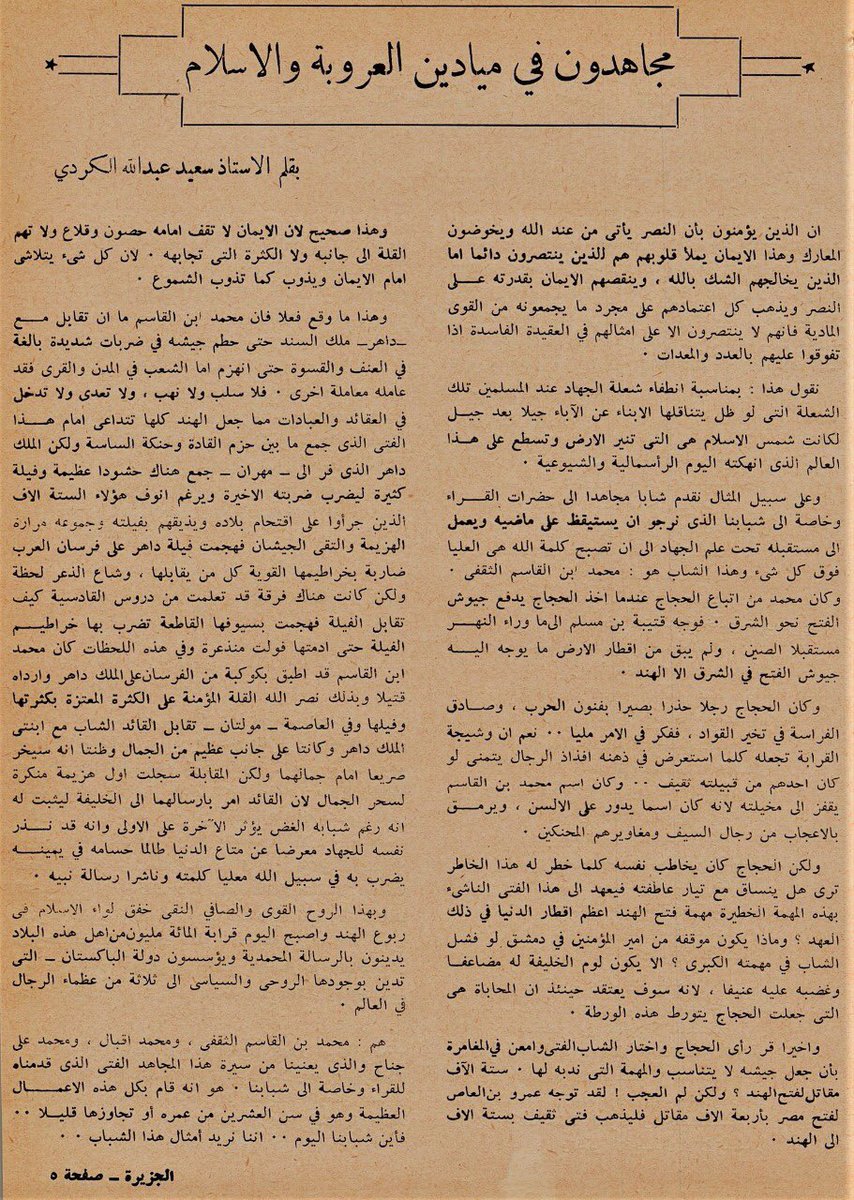 مجاهدون في ميادين العروبة والاسلام
بقلم الاستاذ سعيد عبدالله الكردي
ان الذين يؤمنون بأن النصر يأتى من عند الله ويخوضون
المعارك وهذا الايمان يملأ قلوبهم هم للذين ينتصرون دائما اما
الذين يخالجهم الشك بالله ، وينقصهم الايمان بقدرته على
النصر ويذهب كل اعتمادهم على مجرد ما يجمعونه من القوى
المادية فانهم لا ينتصرون الا على امثالهم في العقيدة الفاسدة اذا
تفوقوا عليهم بالعدد والمعدات ٠
نقول هذا : بمناسبة انطفاء شعلة الجهاد عند المسلمين تلك
الشعلة التى لو ظل يتناقلها الابناء عن الآباء جيلا بعد جيل
لكانت شمس الاسلام هى التى تنير الارض وتسطع على هذا
العالم الذى انهكته اليوم الرأسمالية والشيوعية ٠
وعلى سبيل المثال نقدم شابا مجاهدا الى حضرات القراء
وخاصة الى شبابنا الذى نرجو ان يستيقظ على ماضيه ويعمل
الى مستقبله تحت علم الجهاد الى ان تصبح كلمة الله هى العليا
فوق كل شىء وهذا الشاب هو : محمد ابن القاسم الثقفى ٠
وكان محمد من اتباع الحجاج عندما اخذ الحجاج يدفع جيوش
الفتح نحو الشرق ٠ فوجه قتيبة بن مسلم الى ما وراء النهر
مستقبلا الصين ، ولم يبق من اقطار الارض ما يوجه اليه
جيوش الفتح في الشرق الا الهند ٠
وكان الحجاج رجلا حذرا بصيرا بفنون الحرب ، وصادق
الفراسة في تخير القواد ، ففكر في الامر مليا ٠٠ نعم ان وشيجة
القرابة تجعله كلما استعرض في ذهنه افذاذ الرجال يتمنى لو
كان احدهم من قبيلته ثقيف ٠٠ وكان اسم محمد بن القاسم
يقفز الى مخيلته لانه كان اسما يدور على الالسن ، ويرمق
بالاعجاب من رجال السيف ومغاويرهم المحنكين ٠
ولكن الحجاج كان يخاطب نفسه كلما خطر له هذا الخاطر
ترى هل ينساق مع تيار عاطفته فيعهد الى هذا الفتى الناشىء
بهذه المهمة الخطيرة مهمة فتح الهند اعظم اقطار الدنيا في ذلك
العهد ؟ وماذا يكون موقفه من امير المؤمنين في دمشق لو فشل
الشاب في مهمته الكبرى ؟ الا يكون لوم الخليفة له مضاعفا
وغضبه عليه عنيفا ، لانه سوف يعتقد حينئذ ان المحاباة هى
التى جعلت الحجاج يتورط هذه الورطة ٠
واخيرا قر رأى الحجاج واختار الشاب الفتى وامعن في المغامرة
بأن جعل جيشه لا يتناسب والمهمة التى ندبه لها ٠ ستة الآف
مقاتل لفتح الهند ؟ ولكن لم العجب ! لقد توجه عمرو بن العاص
لفتح مصر بأربعة الاف مقاتل فليذهب فتى ثقيف بستة الاف
الى الهند ٠
وهذا صحيح لان الايمان لا تقف امامه حصون وقلاع ولا تهم
القلة الى جانبه ولا الكثرة التى تجابهه ٠ لان كل شىء يتلاشى
امام الايمان ويذوب كما تذوب الشموع ٠
وهذا ما وقع فعلا فان محمد ابن القاسم ما ان تقابل مع
ـداهرـ ملك السند حتى حطم جيشه في ضربات شديدة بالغة
في العنف والقسوة حتى انهزم اما الشعب في المدن والقرى فقد
عامله معاملة اخرى ٠ فلا سلب ولا نهب ، ولا تعدى ولا تدخل
في العقائد والعبادات مما جعل الهند كلها تتداعى امام هذا
الفتى الذى جمع ما بين حزم القادة وحنكة الساسة ولكن الملك
داهر الذى فر الى ـ مهران ـ جمع هناك حشودا عظيمة وفيلة
كثيرة ليضرب ضربته الاخيرة ويرغم انوف هؤلاء الستة الاف
الذين جرأوا على اقتحام بلاده ويذيقهم بفيلته وجموعه مرارة
الهزيمة والتقى الجيشان فهجمت فيلة داهر على فرسان العرب
ضاربة بخراطيمها القوية كل من يقابلها ، وشاع الذعر لحظة
ولكن كانت هناك فرقة قد تعلمت من دروس القادسية كيف
تقابل الفيلة فهجمت بسيوفها القاطعة تضرب بها خراطيم
الفيلة حتى ادمتها فولت منذعرة وفي هذه اللحظات كان محمد
ابن القاسم قد اطبق بكوكبة من الفرسان على الملك داهر وارداه
قتيلا وبذلك نصر الله القلة المؤمنة على الكثرة المعتزة بكثرتها
وفيلها وفي العاصمة ـ مولتان ـ تقابل القائد الشاب مع ابنتى
الملك داهر وكانتا على جانب عظيم من الجمال وظنتا انه سيخر
صريعا امام جمالهما ولكن المقابلة سجلت اول هزيمة منكرة
لسحر الجمال لان القائد امر بارسالهما الى الخليفة ليثبت له
انه رغم شبابه الغض يؤثر الآخرة على الاولى وانه قد نذر
نفسه للجهاد معرضا عن متاع الدنيا طالما حسامه في يمينه
يضرب به في سبيل الله معليا كلمته وناشرا رسالة نبيه ٠
وبهذا الروح القوى والصافي النقى خفق لواء الاسلام في
ربوع الهند واصبح اليوم قرابة المائة مليون من اهل هذه البلاد
يدينون بالرسالة المحمدية ويؤسسون دولة الباكستان ـ التى
تدين بوجودها الروحى والسياسى الى ثلاثة من عظماء الرجال
في العالم ٠
هم : محمد بن القاسم الثقفى ، ومحمد اقبال ، ومحمد على
جناح والذى يعنينا من سيرة هذا المجاهد الفتى الذى قدمناه
للقراء وخاصة الى شبابنا ٠ هو انه قام بكل هذه الاعمال
العظيمة وهو في سن العشرين من عمره أو تجاوزها قليلا ٠٠
فأين شبابنا اليوم ٠٠ اننا نريد أمثال هذا الشباب ٠٠
الجزيرة ـ صفحة ٥